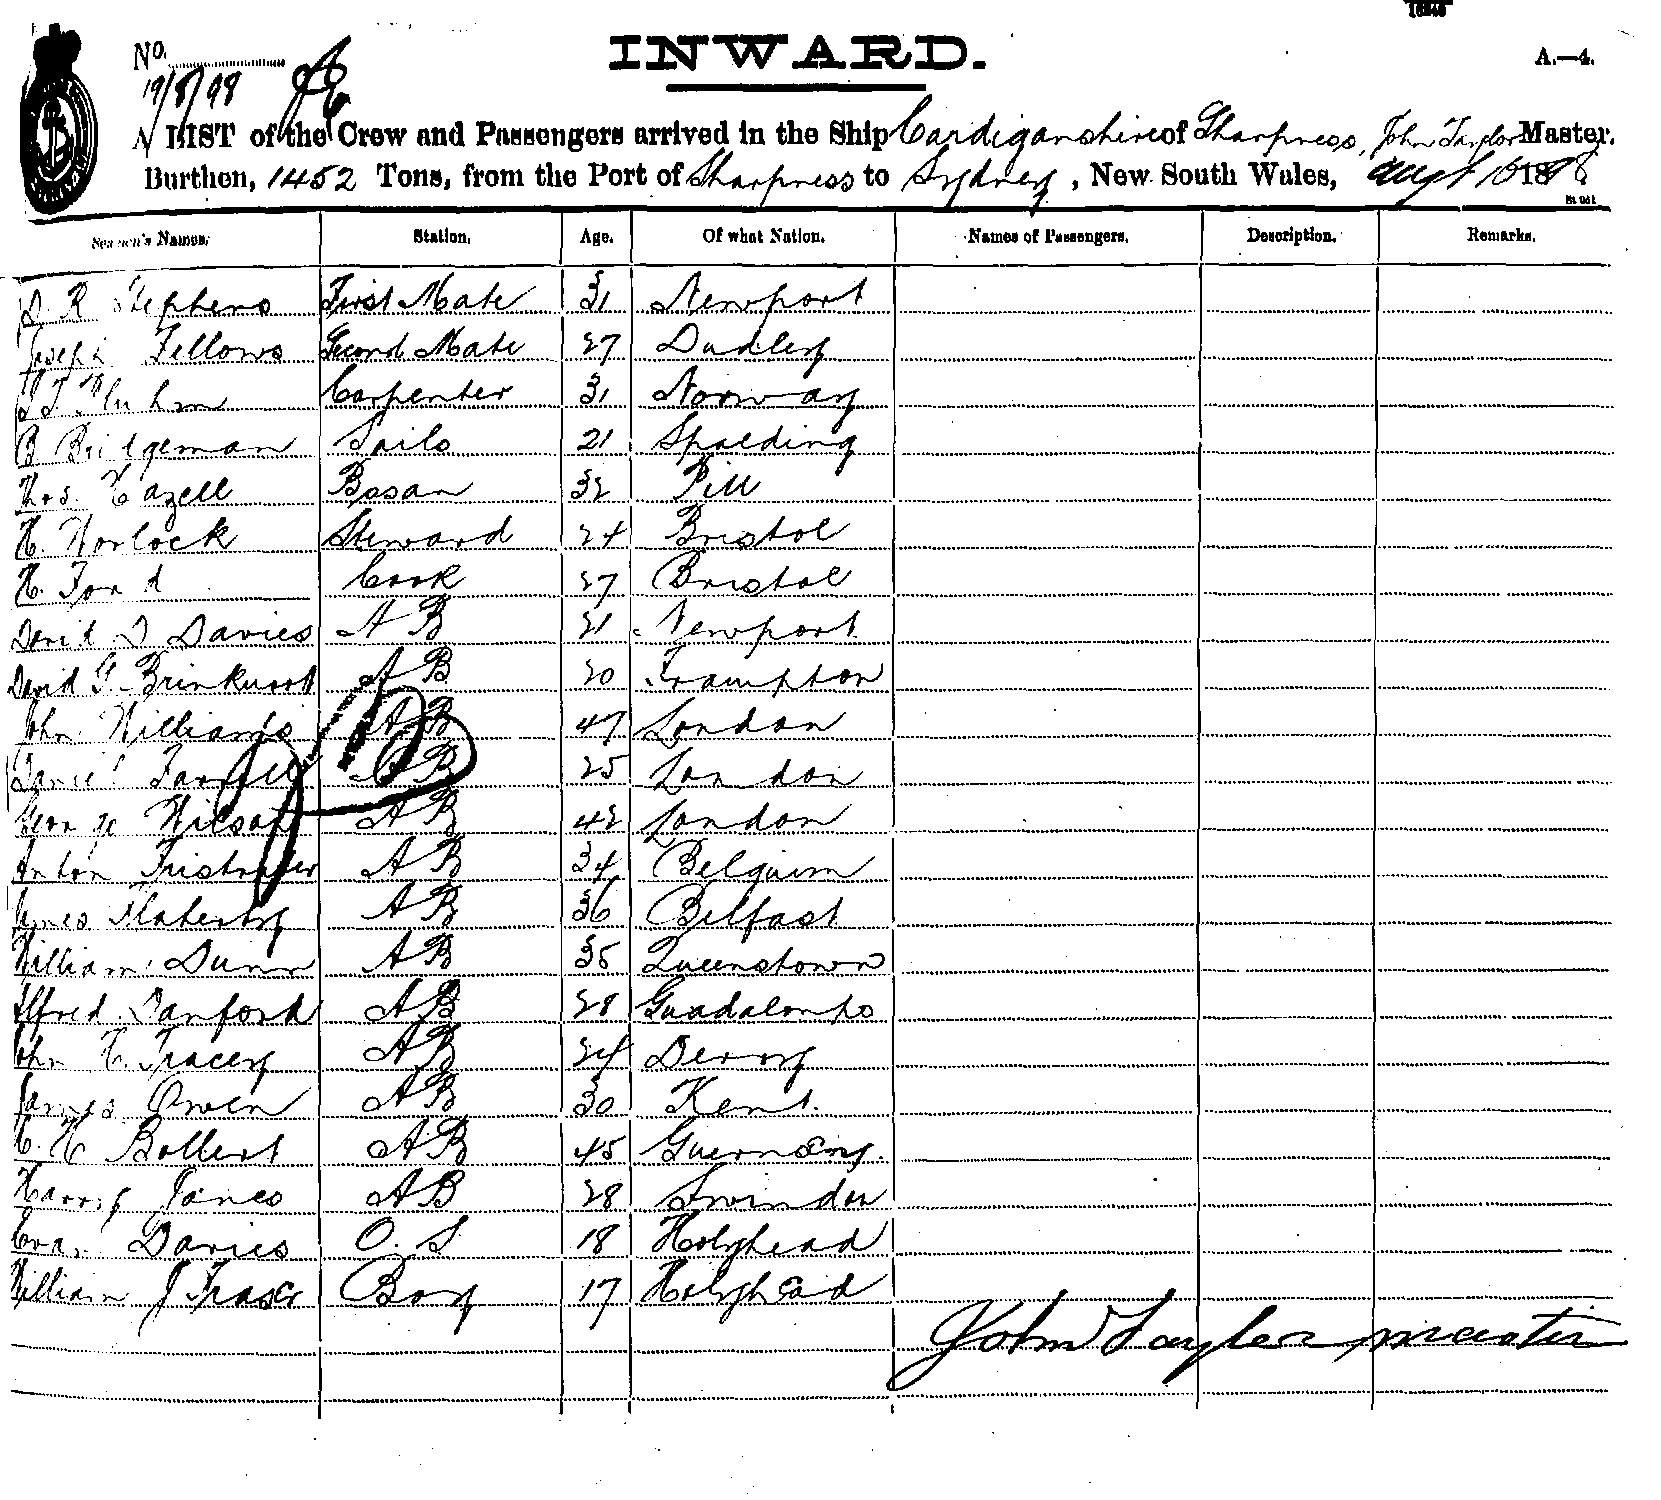 INWARD.
No.
A.—4.
19/8/98
A LIST of the Crew and Passengers arrived in the Ship Cardiganshire of Sharpness, John Taylor Master,
Burthen, 1452 Tons, from the Port of Sharpness to Sydney, New South Wales, Augt 16 1898
Seamen's Names. Station. Age. Of what Nation. Names of Passengers. Description. Remarks.
R Stephens First Mate 31 Newport
Joseph Fellows Second Mate 27 Dudley
Carpenter 31 Norway
B Bridgeman Sails 21 Spalding
Thos. Hazell Bosan 32 Pill
H. Horlock Steward 24 Bristol
H. Ford Cook 27 Bristol
David D Davies A B 21 Newport
David G. Brinkworth A B 20 Frampton
John Williams A B 47 London
Daniel Farrell A B 25 London
George Wilson A B 42 London
Anton A B 34 Belguim
James Flaherty A B 36 Belfast
William Dunn A B 35 Queenstown
Alfred Danford A B 28 Guadaloupe
John H. Tracey A B 24 Derry
James Owen A B 30 Kent.
H. Bollert A B 45 Guernsey.
Harry Jones A B 28 Swindon
Evan Davies O. S. 18 Holyhead
William J Fraser Boy 17 Holyhead
John Taylor master